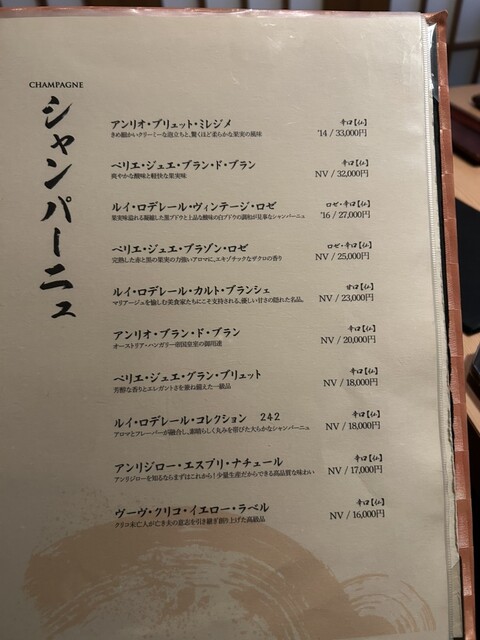 CHAMPAGNE
シャンパーニュ
アンリオ・ブリュット・ミレジメ 辛口【仏】
きめ細かいクリーミーな泡立ちと、驚くほど柔らかな果実の風味 '14 / 33,000円
ベリエ・ジュエ・ブラン・ド・ブラン 辛口【仏】
爽やかな酸味と軽快な果実味 NV / 32,000円
ルイ・ロデレール・ヴィンテージ・ロゼ ロゼ・辛口【仏】
果実味溢れる凝縮した黒ブドウと上品な酸味の白ブドウの調和が見事なシャンパーニュ '16 / 27,000円
ベリエ・ジュエ・ブラゾン・ロゼ ロゼ・辛口【仏】
完熟した赤と黒の果実の力強いアロマに、エキゾチックなザクロの香り NV / 25,000円
ルイ・ロデレール・カルト・ブランシェ 甘口【仏】
マリアージュを愉しむ美食家たちにこそ支持される、優しい甘さの隠れた名品。 NV / 23,000円
アンリオ・ブラン・ド・ブラン 辛口【仏】
オーストリア・ハンガリー帝国皇室の御用達 NV / 20,000円
ベリエ・ジュエ・グラン・ブリュット 辛口【仏】
芳醇な香りとエレガントさを兼ね備えた一級品 NV / 18,000円
ルイ・ロデレール・コレクション 242 辛口【仏】
アロマとフレーバーが融合し、素晴らしく丸みを帯びた大らかなシャンパーニュ NV / 18,000円
アンリジロー・エスプリ・ナチュール 辛口【仏】
アンリジローを知るならまずはこれから!少量生産だからできる高品質な味わい NV / 17,000円
ヴーヴ・クリコ・イエロー・ラベル 辛口【仏】
クリコ未亡人が亡き夫の意志を引き継ぎ創り上げた高級品 NV / 16,000円